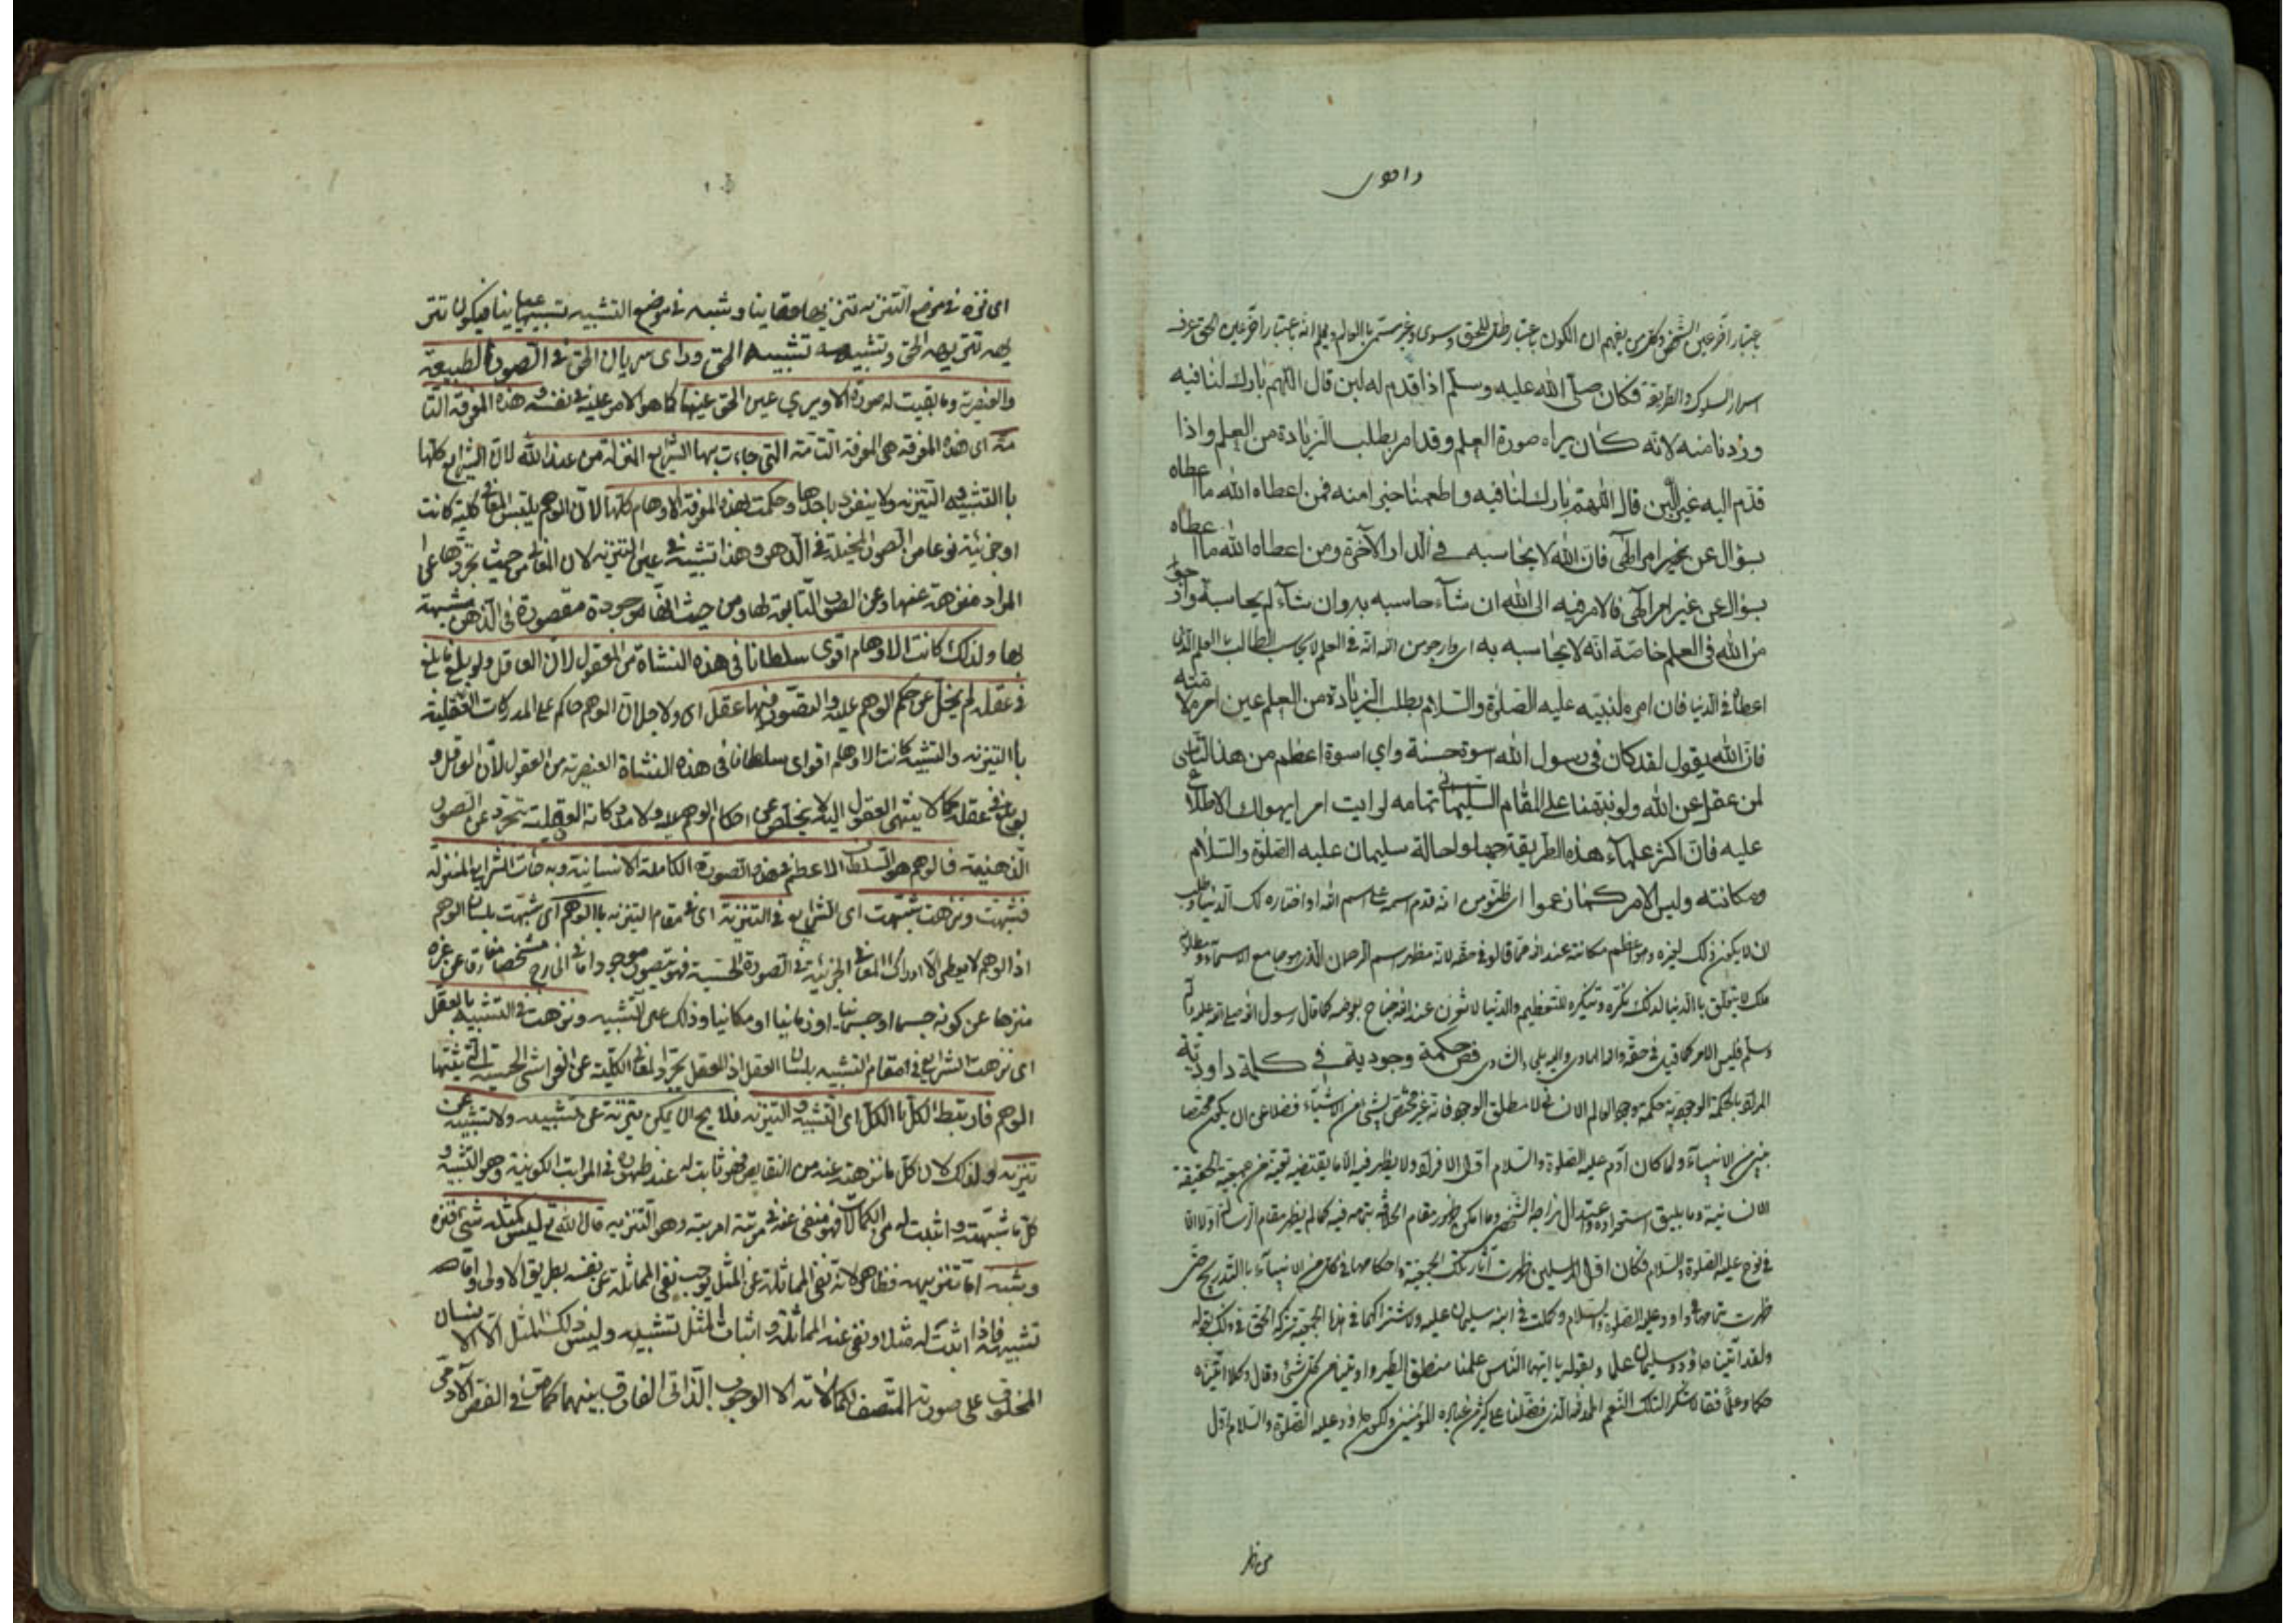 داودى
باعتبار آخر عين الشخص وكل من يفهم ان الكون باعتبار ظل للحق وسوى وغير مسمى بالعالم ويعلم انه باعتبار آخر عين الحق عرف
اسرار السلوك والطريقة فكان صلى الله عليه وسلم اذا قدم له لبن قال اللهم بارك لنا فيه
وزدنا منه لانه كان يراه صورة العلم وقد امر بطلب الزيادة من العلم واذا
قدم اليه غير اللبن قال اللهم بارك لنا فيه واطعمنا خيرا منه فمن اعطاه الله ما اعطاه
بسؤال عن غير امر الهى فان الله لا يحاسبه فى الدار الآخرة ومن اعطاه الله ما اعطاه
بسؤال عن غير امر الهى فالامر فيه الى الله ان شآء حاسبه به وان شآء لم يحاسبه وارجوا
من الله فى العلم خاصة انه لا يحاسبه به اى وارجو من الله انه فى العلم لا يحاسب الطالب بالعلم الذى
اعطاه فى الدنيا فان امره لنبيه عليه الصلوة والسلام بطلب الزيادة من العلم عين امره لامته
فان الله يقول لقد كان فى رسول الله اسوة حسنة واي اسوة اعظم من هذا التأسى
لمن عقل عن الله ولو نبهنا على المقام السليمانى تمامه لرايت امرا يهولك الاطلاع
عليه فان اكثر علمآء هذه الطريقة جهلوا حالة سليمان عليه الصلوة والسلام
ومكانته وليس الامر كما زعموا اى ظنوا من انه قدم اسمه على اسم الله او اختاره لك الدنيا وطلب
ان لا يكون ذلك لغيره وهو اعظم مكانة عند الله مما قالوا فى حقه لانه مظهر اسم الرحمان الذى هو جامع الاسمآء ومطلوبه
ملك لا يتعلق بالدنيا لذلك نكره وتنكيره للتعظيم والدنيا لا تزن عند الله جناح بعوضة كما قال رسول الله صلى الله عليه
وسلم فليس الامر كما قيل فى حقه والله الهادى فص حكمة وجودية فى كلمة داودية
المراد بالحكمة الوجودية حكمة وجود العالم الانسانى لا مطلق الوجود فانه غير مختص بشئ من الاشيآء فضلا عن ان يكون مختصا
بنبى من الانبيآء ولما كان آدم عليه الصلوة والسلام اول الافراد ولا يظهر فيه الا ما يقتضيه تعينه من جمعية الحقيقة
الانسانية وما يليق استعداده واعتدال مزاجه الشخصى وما امكن ظهور مقام الخلافة بتمامه فيه كما لم يظهر مقام الرسالة اولا الا
فى نوح عليه الصلوة والسلام فكان اول المرسلين ظهرت آثار تلك الجمعية واحكامها فى كل من الانبيآء بالتدريج حتى
ظهرت بتمامها فى داود عليه الصلوة والسلام وكملت فى ابنه سليمان عليه ولاشتراكهما فى هذه الجمعية شركه الحق فى ذلك بقوله
ولقد آتينا داود وسليمان علما وبقوله يا ايها الناس علمنا منطق الطير واوتينا من كل شئ وقال وكلا آتيناه
حكما وعلما فقالا شكرا لتلك النعم الحمد لله الذى فضلنا على كثير من عباده المؤمنين ولكون داود عليه الصلوة والسلام اول
من ظهر
اى نزه فى موضع التنزيه تنزيها حقانيا وشبه فى موضع التشبيه تشبيها عيانيا فيكون تنز
يهه تنزيه الحق وتشبيهه تشبيه الحق وراى سريان الحق فى الصور الطبيعية
والعنصرية وما بقيت له صورة الا ويرى عين الحق عينها كما هو الامر عليه فى نفسه وهذه المعرفة التا
مة اى هذه المعرفة هى المعرفة التامة التى جاءت بها الشرايع المنزلة من عند الله لان الشرايع كلها
با التشبيه والتنزيه ولا ينفرد باحدها وحكمت بهذه المعرفة الاوهام كلها لان الوهم يلبس المعانى كلية كانت
او جزئية نوعا من الصور المخيلة فى الذهن وهذا تشبيه فى عين التنزيه لان المعانى من حيث تجردها عن
المواد منزهة عنها وعن الصور التابعة لها ومن حيث انها موجودة مقصورة فى الذهن مشبهة
بها ولذلك كانت الاوهام اقوى سلطانا فى هذه النشاة من العقول لان العاقل ولو بلغ ما بلغ
فى عقله لم يخل عن حكم الوهم عليه والتصور فيما عقل اى ولاجل ان الوهم حاكم على المدركات العقلية
با التنزيه والتشبيه كانت الاوهام اقوى سلطانا فى هذه النشاة العنصرية من العقول لان العاقل و
لو بلغ فى عقله كما لا ينتهى العقول اليه لا يخلص عن احكام الوهم عليه ولا مدركاته العقلية تتجرد عن الصور
الذهنية فالوهم هو السلطان الاعظم فى هذه الصورة الكاملة الانسانية وبه جاءت الشرايع المنزلة
فشبهت ونزهت شبهت اى الشرايع فى التنزيه اى فى مقام التنزيه بالوهم اى شبهت بلسان الوهم
اذ الوهم لا يعطى الا ادراك المعانى الجزئية فى الصورة الحسية فهو يتصور موجودا فى الخارج مشخصا مفارقا عن غيره
منزها عن كونه جسما او جسمانيا او زمانيا او مكانيا وذلك عين التشبيه ونزهت فى التشبيه بالعقل
اى نزهت الشرايع فى مقام التشبيه بلسان العقل اذ العقل يجرد المعانى الكلية عن الغواشى الحسية التى يثبتها
الوهم فارتبط الكل بالكل اى التشبيه والتنزيه فلا يصح ان يكون تنزيه عن تشبيه ولا تشبيه عن
تنزيه وذلك لان كل ما نزهته عنه من النقايص فهو ثابت له عند ظهوره فى المراتب الكونية وهو التشبيه و
كل ما شبهته واثبت له من الكمالات فهو منفى عنه فى مرتبة احديته وهو التنزيه قال الله تع ليس كمثله شئ فنزه
وشبه اما تنزيهه فظاهر لانه نفى المماثلة عن المثل يوجب نفى المماثلة عن نفسه بطريق الاولى واما
تشبيهه فاذا اثبت له مثلا ونفى عنه المماثلة واثبات المثل تشبيه وليس ذلك المثل الا الانسان
المخلوق على صورته المتصف بكمالاته الا الوجوب الذاتى الفارق بينهما كما مر فى الفص الآدمى